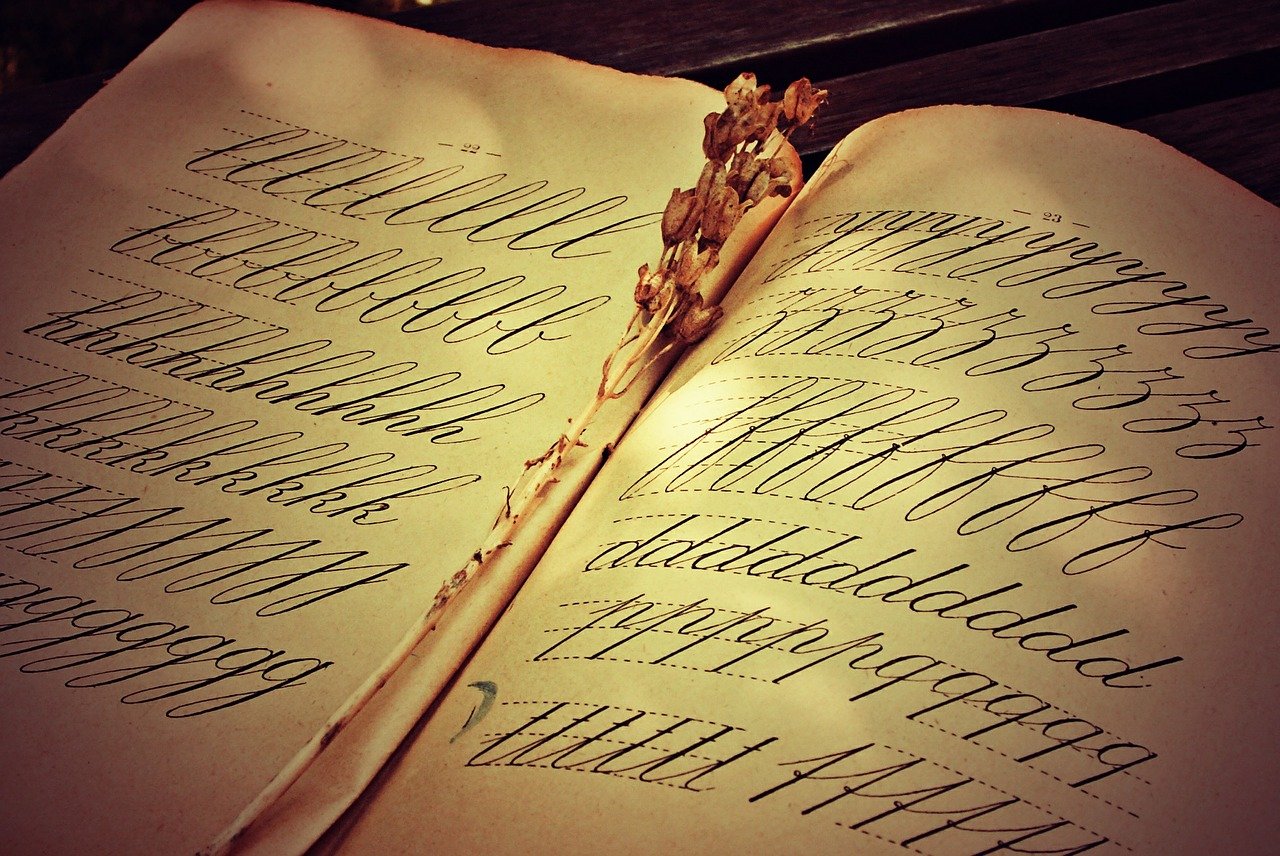 — 22 —
lllllllllll
bbbbbbbbbbb
hhhhhhhhhhh
kkkkkkkkkk
jjjjjjjj
gggggggg
— 23 —
yyyyyyyyyy
zzzzzzzzzz
ffffffffff
ddddddddddd
pppppqqqqq
tttttt